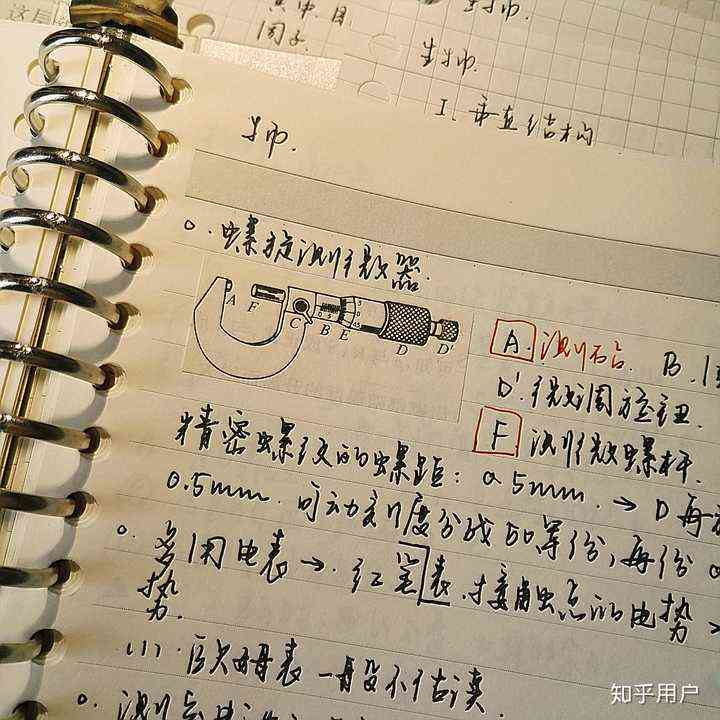 生物.
生物.
I. 垂直结构
物.
。螺旋测微器.
A F C B E D D'
0 5
5
0
45
A. 测砧. B.
D'. 微调旋钮.
F 测微螺杆.
精密螺纹的螺距: 0.5mm. → D 每
0.5mm. 可动刻度分成50等份, 每份 0
。多用电表 → 红笔表.接触点的电势 >
势.
(1). 欧姆表一般不估读.
知乎用户